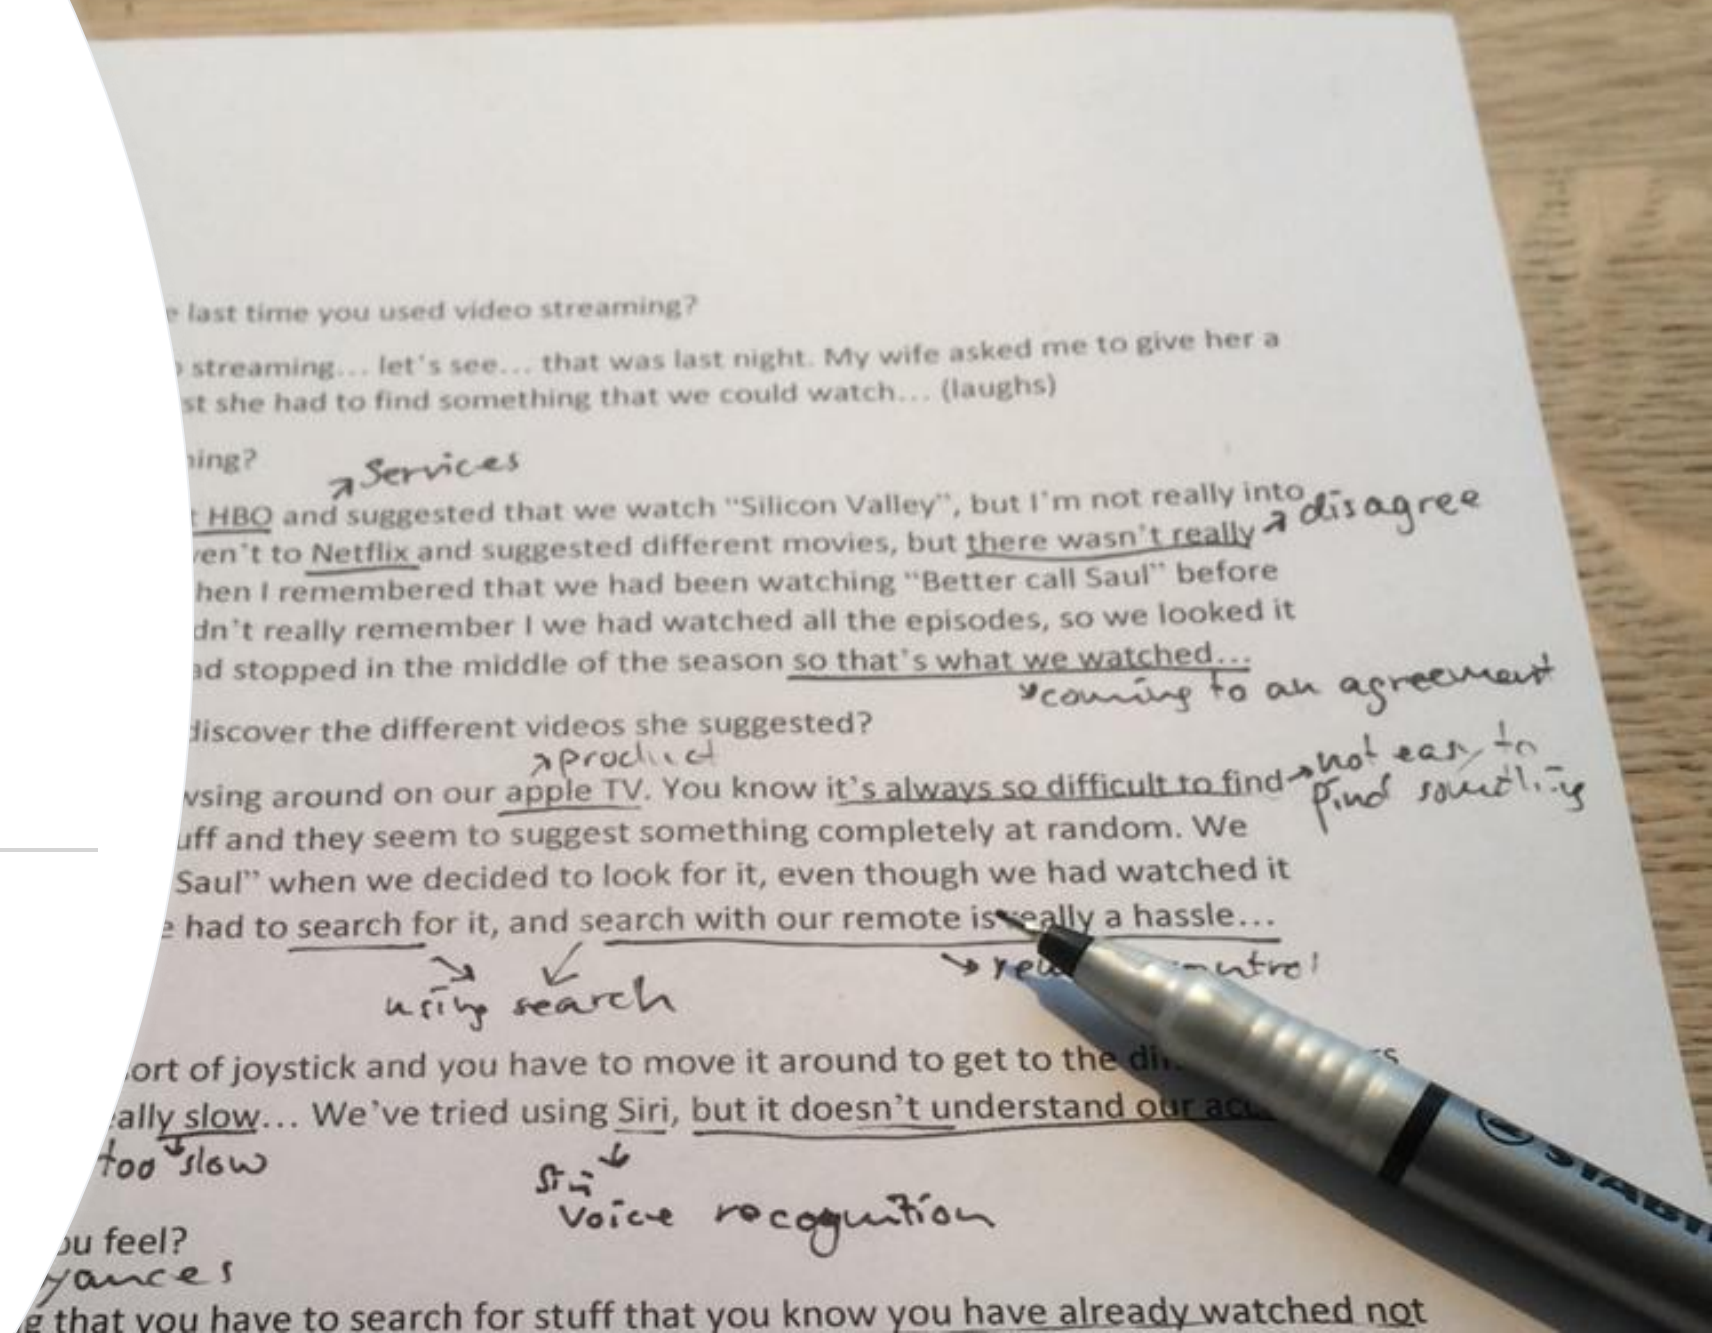 last time you used video streaming?
streaming... let's see... that was last night. My wife asked me to give her a
she had to find something that we could watch... (laughs)
Services
HBO and suggested that we watch "Silicon Valley", but I'm not really into
disagree
to Netflix and suggested different movies, but there wasn't really
I remembered that we had been watching "Better call Saul" before
really remember I we had watched all the episodes, so we looked it
stopped in the middle of the season so that's what we watched...
coming to an agreement
discover the different videos she suggested?
product
not easy to
around on our apple TV. You know it's always so difficult to find
find something
and they seem to suggest something completely at random. We
Saul" when we decided to look for it, even though we had watched it
had to search for it, and search with our remote is really a hassle...
using search
of joystick and you have to move it around to get to the
slow... We've tried using Siri, but it doesn't understand our
too slow
Voice recognition
feel?
that you have to search for stuff that you know you have already watched not